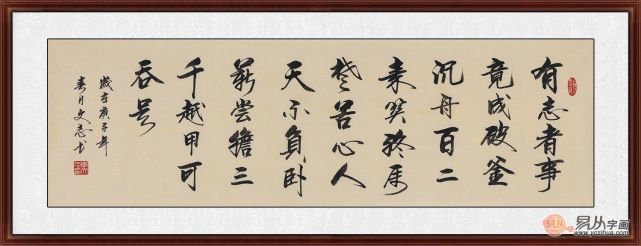 有志者事
竟成破釜
沉舟百二
秦关终属
楚苦心人
天不負卧
薪尝膽三
千越甲可
吞吴
歲在庚子年
春月文志书
易从字画
www.yczihua.com